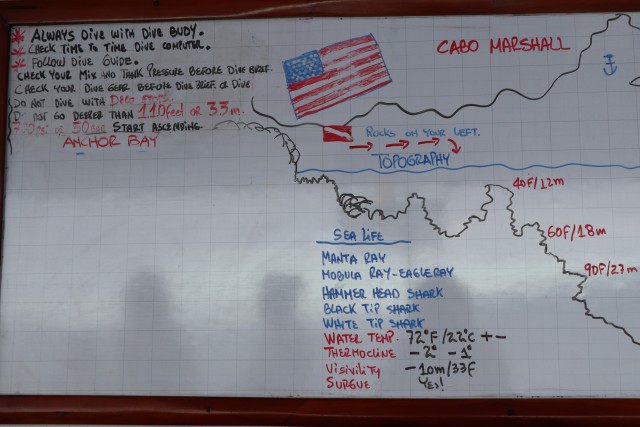 * ALWAYS DIVE WITH DIVE BUDY.
* CHECK TIME TO TIME DIVE COMPUTER.
* FOLLOW DIVE GUIDE.
CHECK YOUR MIX AND TANK PRESSURE BEFORE DIVE BRIEF.
CHECK YOUR DIVE GEAR BEFORE DIVE BRIEF. OR DIVE
DO NOT DIVE WITH DECO
DO NOT GO DEEPER THAN 110feet OR 33m.
OR 50bar START ASCENDING
ANCHOR BAY
CABO MARSHALL
ROCKS ON YOUR LEFT.
TOPOGRAPHY
40F/12m
60F/18m
90F/27m
SEA LIFE
MANTA RAY
MOBULA RAY-EAGLERAY
HAMMER HEAD SHARK
BLACK TIP SHARK
WHITE TIP SHARK
WATER TEMP. 72°F/22°C + -
THERMOCLINE -2° -1°
VISIVILITY -10m/33F
SURGUE YES!